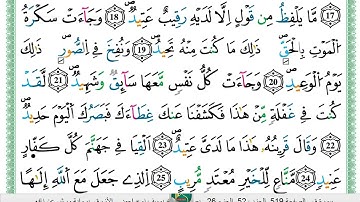 ﴿17﴾ مَّا يَلْفِظُ مِن قَوْلٍ إِلَّا لَدَيْهِ رَقِيبٌ عَتِيدٌ ﴿18﴾ وَجَآءَتْ سَكْرَةُ
ٱلْمَوْتِ بِٱلْحَقِّ ۖ ذَٰلِكَ مَا كُنتَ مِنْهُ تَحِيدُ ﴿19﴾ وَنُفِخَ فِى ٱلصُّورِ ۚ ذَٰلِكَ
يَوْمُ ٱلْوَعِيدِ ﴿20﴾ وَجَآءَتْ كُلُّ نَفْسٍ مَّعَهَا سَآئِقٌ وَشَهِيدٌ ﴿21﴾ لَّقَدْ
كُنتَ فِى غَفْلَةٍ مِّنْ هَٰذَا فَكَشَفْنَا عَنكَ غِطَآءَكَ فَبَصَرُكَ ٱلْيَوْمَ حَدِيدٌ
﴿22﴾ وَقَالَ قَرِينُهُۥ هَٰذَا مَا لَدَىَّ عَتِيدٌ ﴿23﴾ أَلْقِيَا فِى جَهَنَّمَ كُلَّ كَفَّارٍ
عَنِيدٍ ﴿24﴾ مَّنَّاعٍ لِّلْخَيْرِ مُعْتَدٍ مُّرِيبٍ ﴿25﴾ ٱلَّذِى جَعَلَ مَعَ ٱللَّهِ إِلَٰهًا